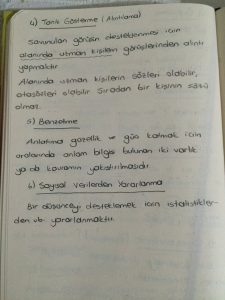 4) Tanık Gösterme (Alıntılama)
Savunulan görüşün desteklenmesi için
alanında uzman kişilerin görüşlerinden alıntı
yapmaktır.
Alanında uzman kişilerin sözleri olabilir,
atasözleri olabilir. Sıradan bir kişinin sözü
olmaz.
5) Benzetme
Anlatıma güzellik ve güç katmak için
aralarında anlam bilgisi bulunan iki varlık
ya da kavramın yakıştırılmasıdır.
6) Sayısal Verilerden Yararlanma
Bir düşünceyi desteklemek için istatistikler-
den vb. yararlanmaktır.